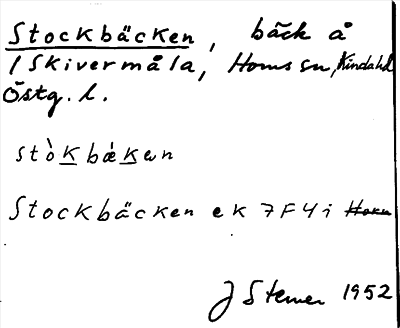 Stockbäcken, bäck å
/ Skivermåla, Horns sn, Kinda hd
Östg. l.
stòkbákan
Stockbäcken ek 7F4i Horn
J Stemer 1952